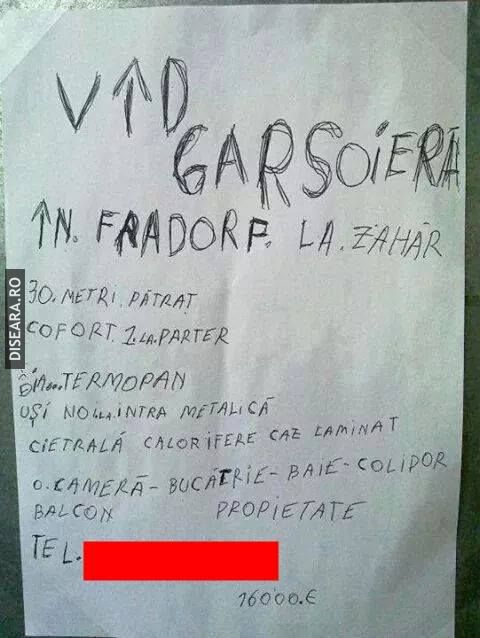 V↑D
GARSOIERĂ
↑N. FRADORF. LA. ZAHĂR
30. METRI. PĂTRAȚ
COFORT. 1. LA. PARTER
TERMOPAN
UȘI NOLLA. INTRA METALICĂ
CIETRALĂ CALORIFERE CAZ LAMINAT
O. CAMERĂ - BUCĂTRIE - BAIE - COLIDOR
BALCON PROPIETATE
TEL.
16000.€
DISEARA.RO